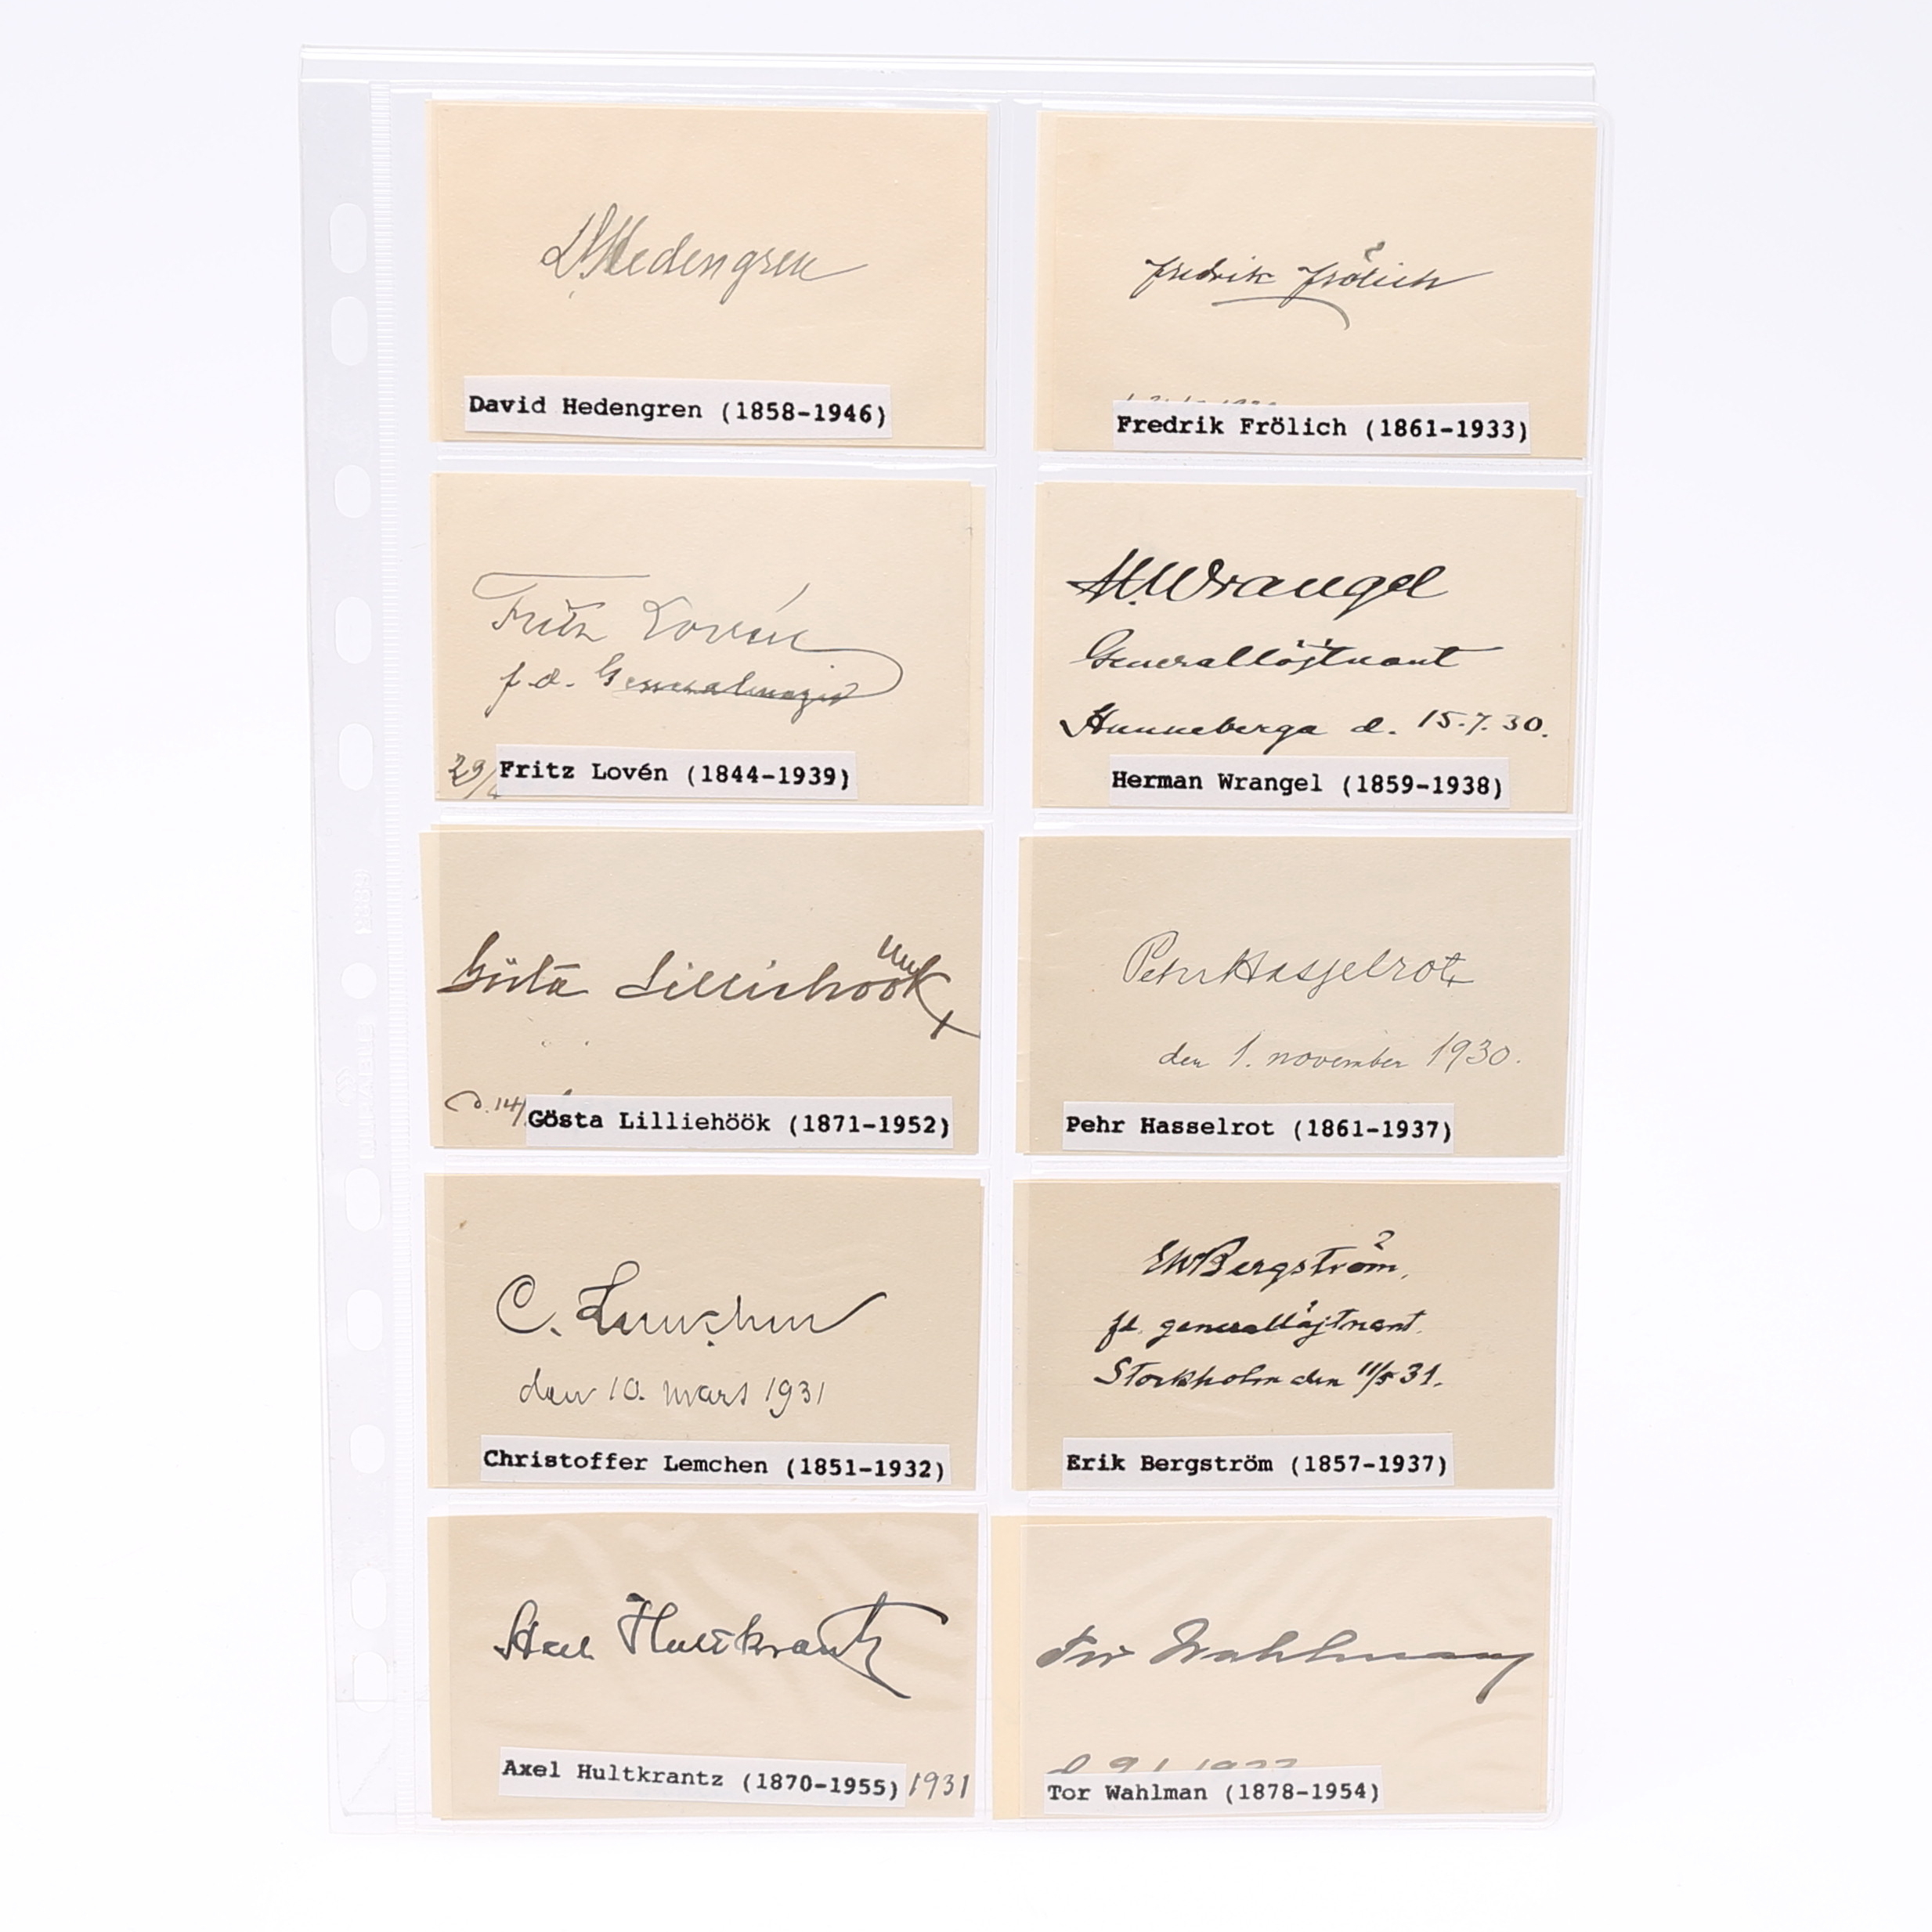 D. Hedengren
David Hedengren (1858-1946)
Fredrik Frölich
Fredrik Frölich (1861-1933)
Fritz Lovén
f. d. Generalmajor
29/
Fritz Lovén (1844-1939)
H. Wrangel
Generallöjtnant
Hunneberga d. 15.7.30.
Herman Wrangel (1859-1938)
Gösta Lilliehöök
d. 14/
Gösta Lilliehöök (1871-1952)
Pehr Hasselrot
den 1. november 1930.
Pehr Hasselrot (1861-1937)
C. Lemchen
den 10. mars 1931
Christoffer Lemchen (1851-1932)
EWBergström,
fd. generallöjtnant.
Stockholm den 11/5 31.
Erik Bergström (1857-1937)
Axel Hultkrantz
Axel Hultkrantz (1870-1955) 1931
Tor Wahlman
Tor Wahlman (1878-1954)